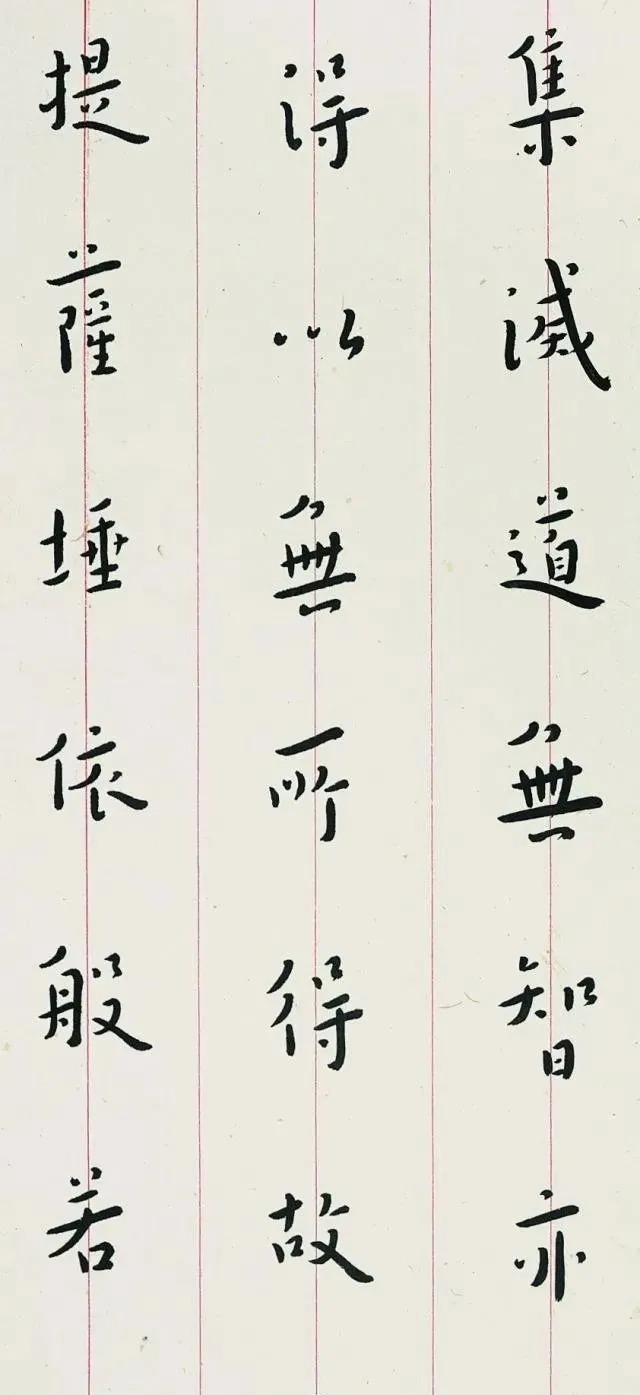 集滅道無智亦
得以無所得故
提薩埵依般若